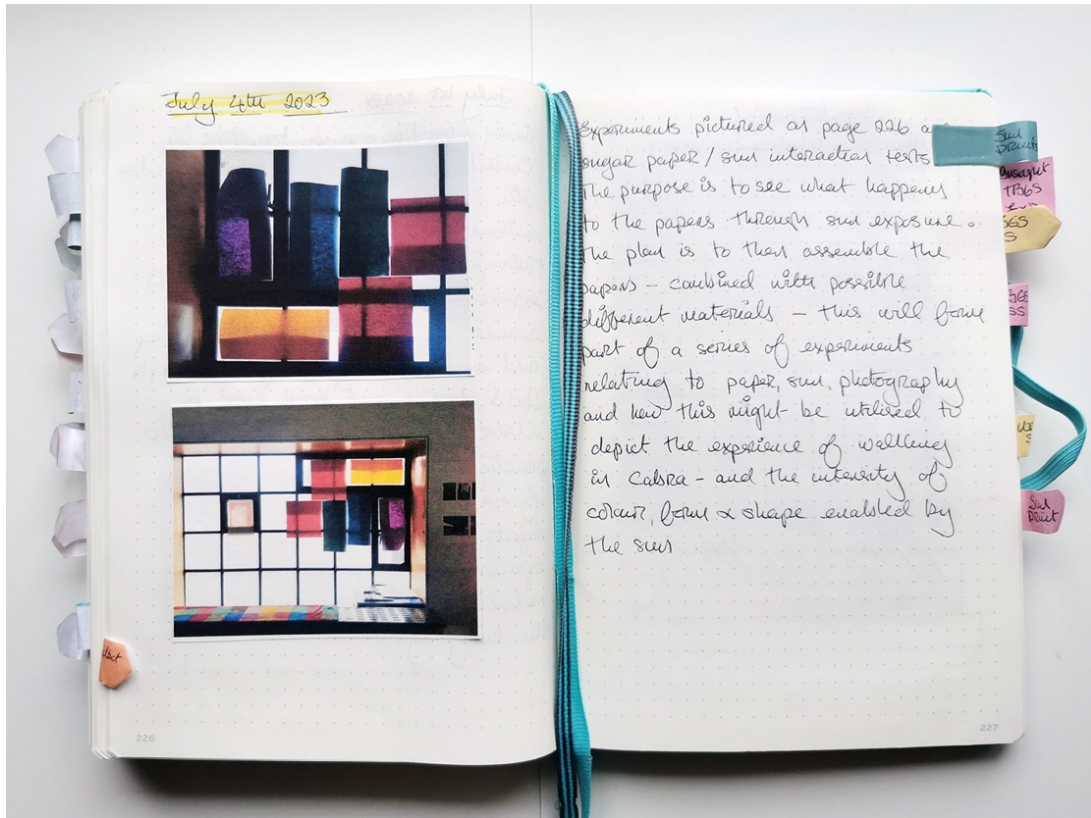 July 4th 2023
226
Experiments pictured on page 226 are
sugar paper / sun interaction tests
The purpose is to see what happens
to the papers through sun exposure.
The plan is to then assemble the
papers – combined with possible
different materials – this will form
part of a series of experiments
relating to paper, sun, photography
and how this might be utilised to
depict the experience of walking
in – and the intensity of
colour, form & shape enabled by
the sun
227
Sun
Prints
TBGS
SGS
S
Sun
Print